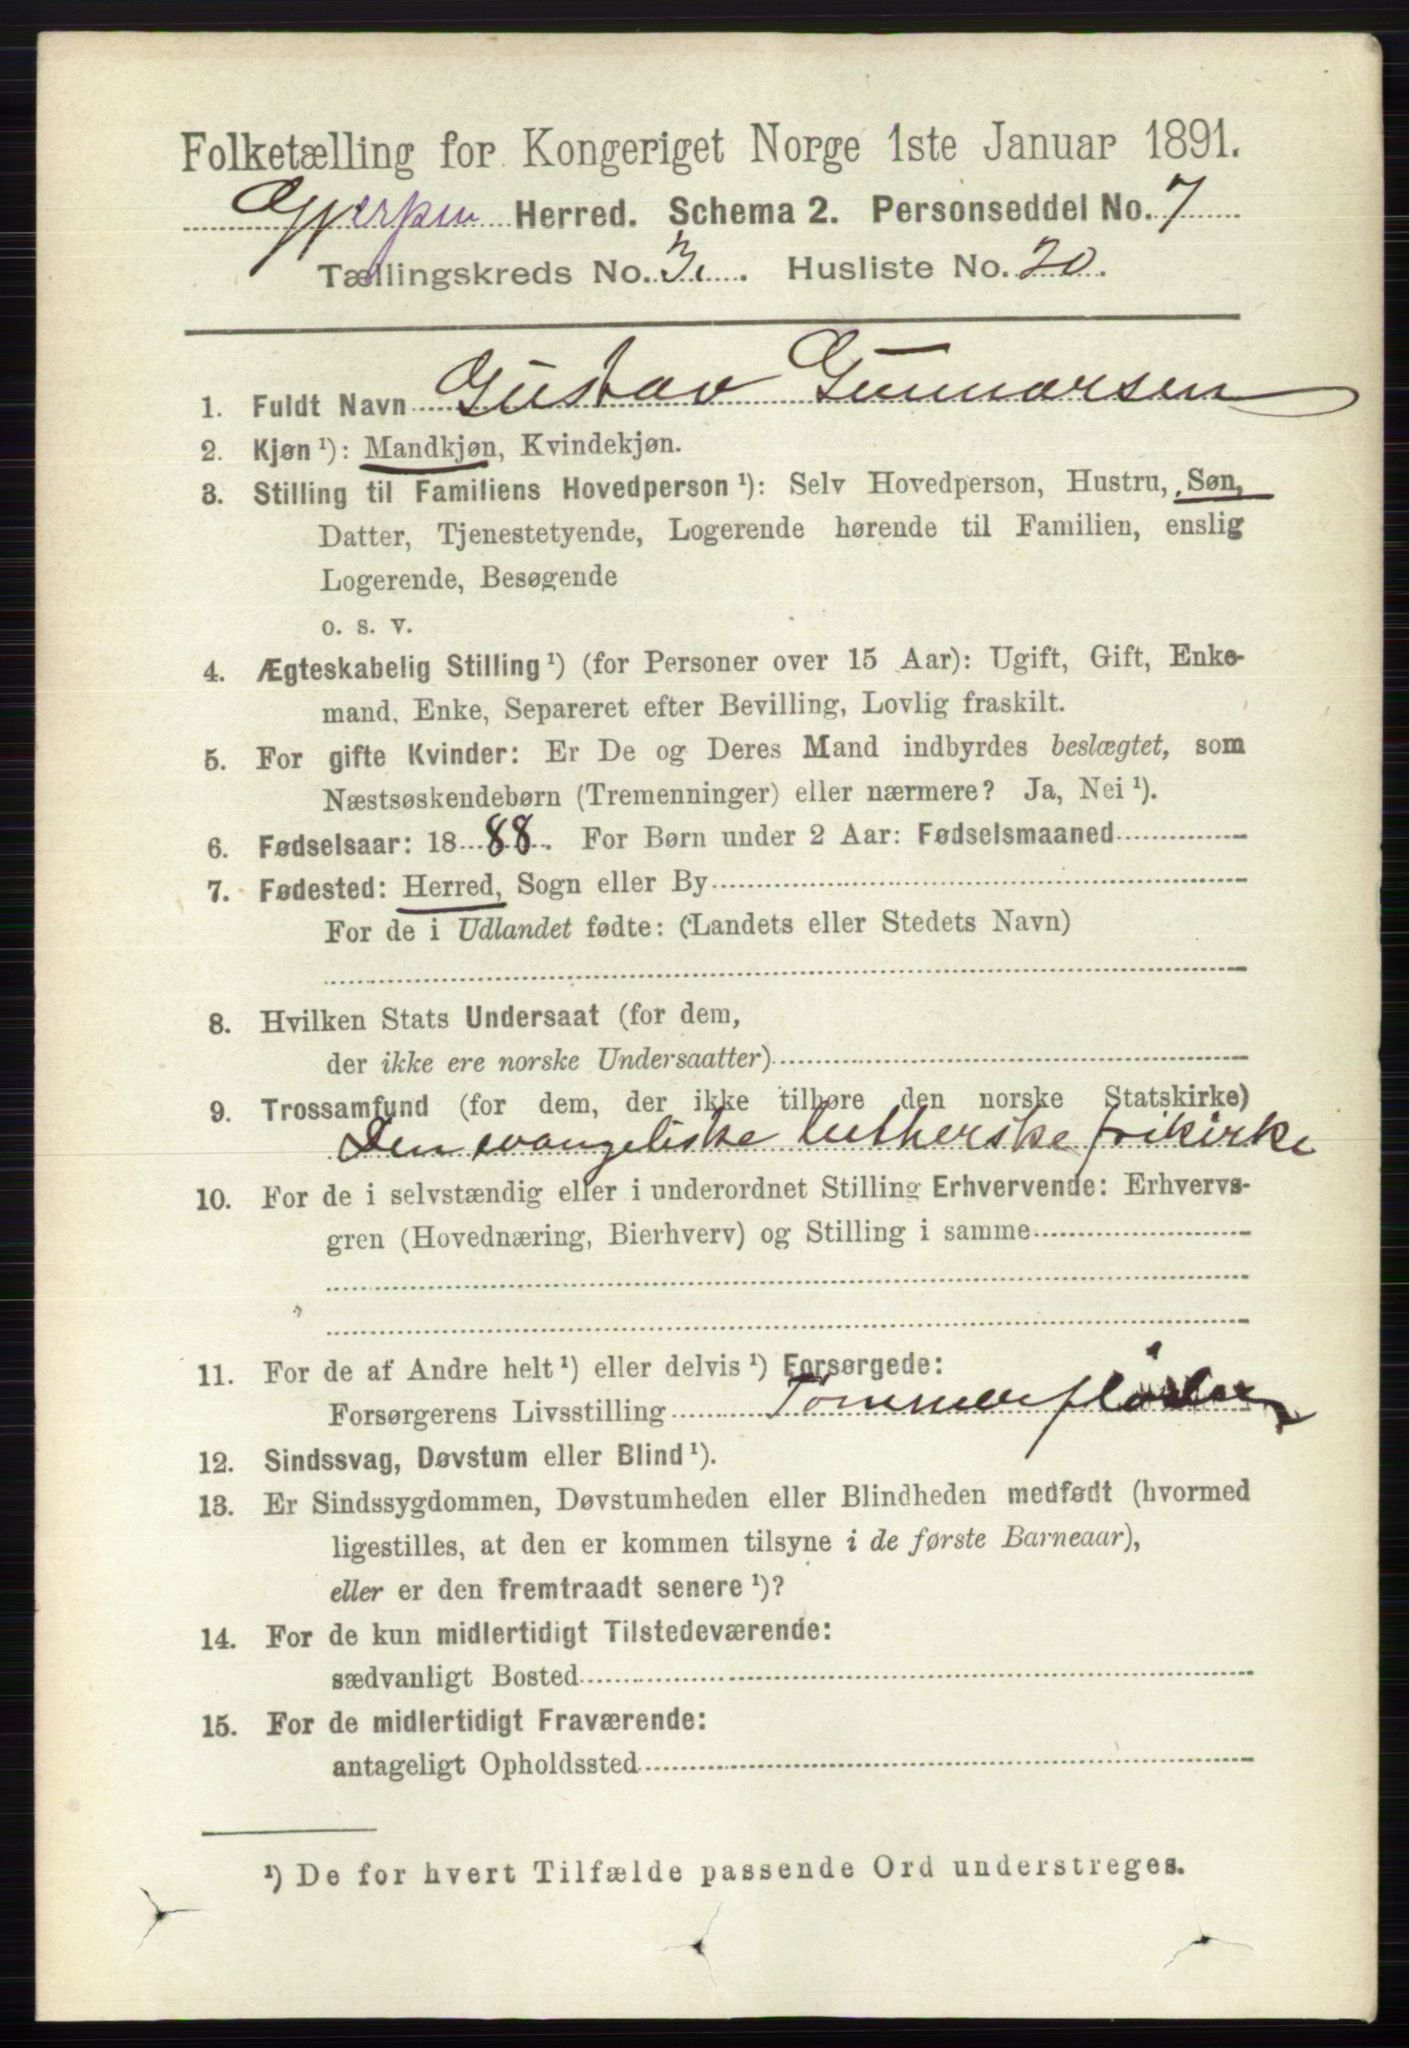 Folketælling for Kongeriget Norge 1ste Januar 1891.
Gjerpen Herred. Schema 2. Personseddel No. 7
Tællingskreds No. 3. Husliste No. 20.
1. Fuldt Navn Gustav Gunnarsen
2. Kjøn ¹): Mandkjøn, Kvindekjøn.
3. Stilling til Familiens Hovedperson ¹): Selv Hovedperson, Hustru, Søn,
Datter, Tjenestetyende, Logerende hørende til Familien, enslig
Logerende, Besøgende
o. s. v.
4. Ægteskabelig Stilling ¹) (for Personer over 15 Aar): Ugift, Gift, Enke-
mand, Enke, Separeret efter Bevilling, Lovlig fraskilt.
5. For gifte Kvinder: Er De og Deres Mand indbyrdes beslægtet, som
Næstsøskendebørn (Tremenninger) eller nærmere? Ja, Nei ¹).
6. Fødselsaar: 1888. For Børn under 2 Aar: Fødselsmaaned
7. Fødested: Herred, Sogn eller By
For de i Udlandet fødte: (Landets eller Stedets Navn)
8. Hvilken Stats Undersaat (for dem,
der ikke ere norske Undersaatter)
9. Trossamfund (for dem, der ikke tilhøre den norske Statskirke)
Den evangeliske lutherske frikirke
10. For de i selvstændig eller i underordnet Stilling Erhvervende: Erhvervs-
gren (Hovednæring, Bierhverv) og Stilling i samme
11. For de af Andre helt ¹) eller delvis ¹) Forsørgede:
Forsørgerens Livsstilling
12. Sindssvag, Døvstum eller Blind ¹).
13. Er Sindssygdommen, Døvstumheden eller Blindheden medfødt (hvormed
ligestilles, at den er kommen tilsyne i de første Barneaar),
eller er den fremtraadt senere ¹)?
14. For de kun midlertidigt Tilstedeværende:
sædvanligt Bosted
15. For de midlertidigt Fraværende:
antageligt Opholdssted
¹) De for hvert Tilfælde passende Ord understreges.